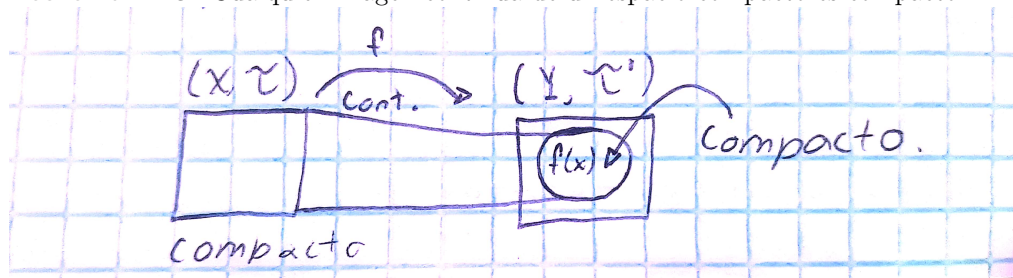 f
(X, τ) cont. (Y, τ')
f(x) compacto.
compacto